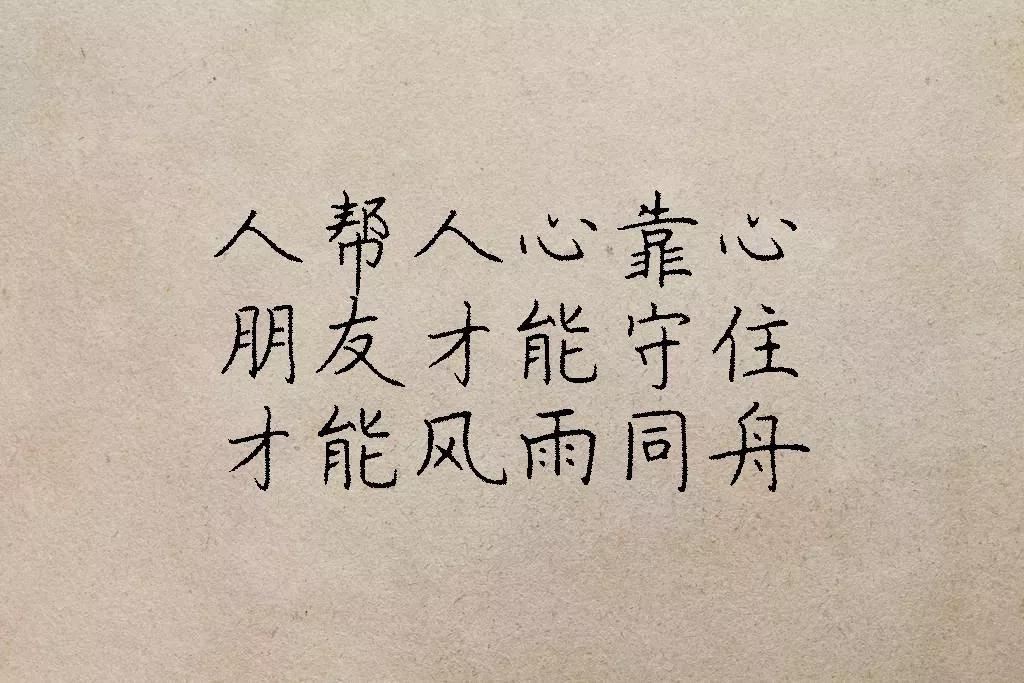 人帮人心靠心
朋友才能守住
才能风雨同舟